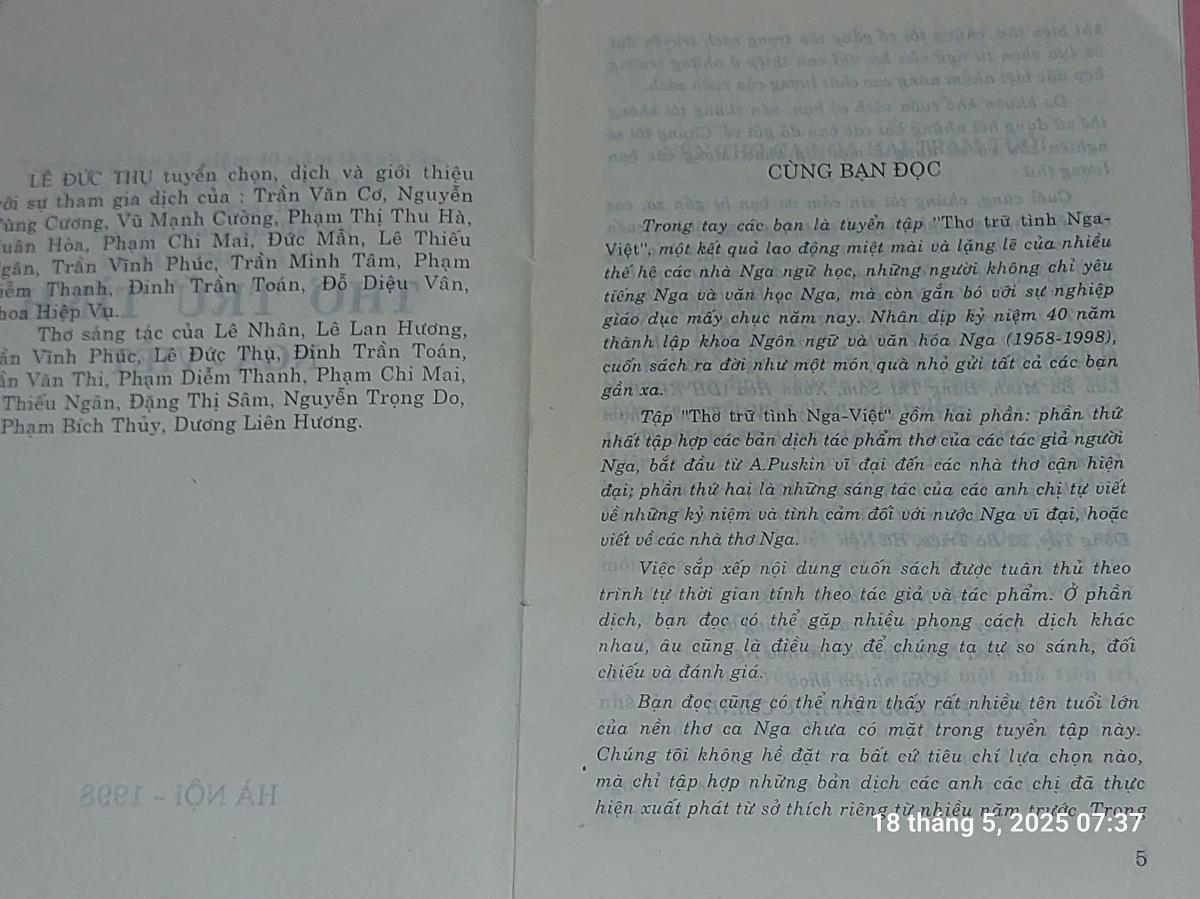 LÊ ĐỨC THỤ tuyển chọn, dịch và giới thiệu
với sự tham gia dịch của : Trần Văn Cơ, Nguyễn
Tùng Cương, Vũ Mạnh Cường, Phạm Thị Thu Hà,
Xuân Hòa, Phạm Chi Mai, Đức Mẫn, Lê Thiếu
Ngân, Trần Vĩnh Phúc, Trần Minh Tâm, Phạm
Diễm Thanh, Đinh Trần Toán, Đỗ Diệu Vân,
Hiệp Vụ.
Thơ sáng tác của Lê Nhân, Lê Lan Hương,
Vĩnh Phúc, Lê Đức Thụ, Đinh Trần Toán,
Văn Thi, Phạm Diễm Thanh, Phạm Chi Mai,
Thiếu Ngân, Đặng Thị Sâm, Nguyễn Trọng Do,
Phạm Bích Thủy, Dương Liên Hương.
HÀ NỘI - 1998
CÙNG BẠN ĐỌC
Trong tay các bạn là tuyển tập "Thơ trữ tình Nga-
Việt", một kết quả lao động miệt mài và lặng lẽ của nhiều
thế hệ các nhà Nga ngữ học, những người không chỉ yêu
tiếng Nga và văn học Nga, mà còn gắn bó với sự nghiệp
giáo dục mấy chục năm nay. Nhân dịp kỷ niệm 40 năm
thành lập khoa Ngôn ngữ và văn hóa Nga (1958-1998),
cuốn sách ra đời như một món quà nhỏ gửi tất cả các bạn
gần xa.
Tập "Thơ trữ tình Nga-Việt" gồm hai phần: phần thứ
nhất tập hợp các bản dịch tác phẩm thơ của các tác giả người
Nga, bắt đầu từ A.Puskin vĩ đại đến các nhà thơ cận hiện
đại; phần thứ hai là những sáng tác của các anh chị tự viết
về những kỷ niệm và tình cảm đối với nước Nga vĩ đại, hoặc
viết về các nhà thơ Nga.
Việc sắp xếp nội dung cuốn sách được tuân thủ theo
trình tự thời gian tính theo tác giả và tác phẩm. Ở phần
dịch, bạn đọc có thể gặp nhiều phong cách dịch khác
nhau, âu cũng là điều hay để chúng ta tự so sánh, đối
chiếu và đánh giá.
Bạn đọc cũng có thể nhận thấy rất nhiều tên tuổi lớn
của nền thơ ca Nga chưa có mặt trong tuyển tập này.
Chúng tôi không hề đặt ra bất cứ tiêu chí lựa chọn nào,
mà chỉ tập hợp những bản dịch các anh các chị đã thực
hiện xuất phát từ sở thích riêng từ nhiều năm trước. Trong
18 tháng 5, 2025 07:37
5